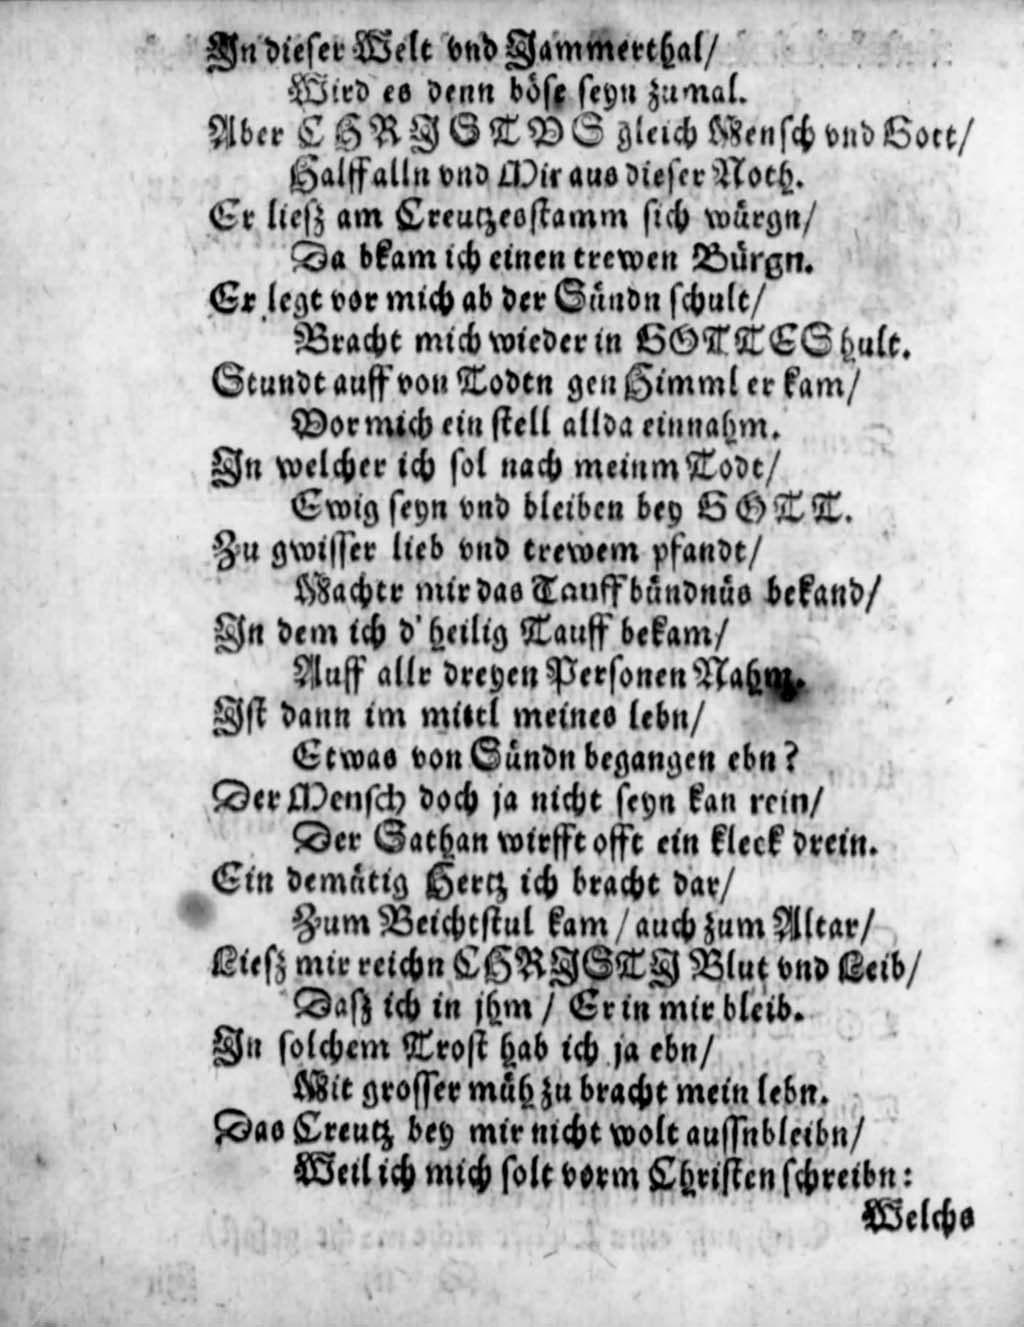 In dieser Welt vnd Jammerthal/
Wird es denn böse seyn zumal.
Aber CHRISTVS gleich Mensch vnd Gott/
Halff alln vnd Mir aus dieser Noth.
Er liesz am Creutzesstamm sich würgn/
Da bkam ich einen trewen Bürgn.
Er legt vor mich ab der Sündn schult/
Bracht mich wieder in GOTTES hult.
Stundt auff von Todtn gen Himml er kam/
Vor mich ein stell allda einnahm.
In welcher ich sol nach meinm Todt/
Ewig seyn vnd bleiben bey GOTT.
Zu gwisser lieb vnd trewem pfandt/
Machtr mir das Tauffbündnüs bekand/
In dem ich d' heilig Tauff bekam/
Auff allr dreyen Personen Nahm.
Ist dann im mittl meines lebn/
Etwas von Sündn begangen ebn?
Der Mensch doch ja nicht seyn kan rein/
Der Sathan wirfft offt ein kleck drein.
Ein demütig Hertz ich bracht dar/
Zum Beichtstul kam / auch zum Altar/
Liesz mir reichn CHRISTI Blut vnd Leib/
Dasz ich in jhm / Er in mir bleib.
In solchem Trost hab ich ja ebn/
Mit grosser müh zu bracht mein lebn.
Das Creutz bey mir nicht wolt aussnbleibn/
Weil ich mich solt vorm Christen schreibn:
Welchs